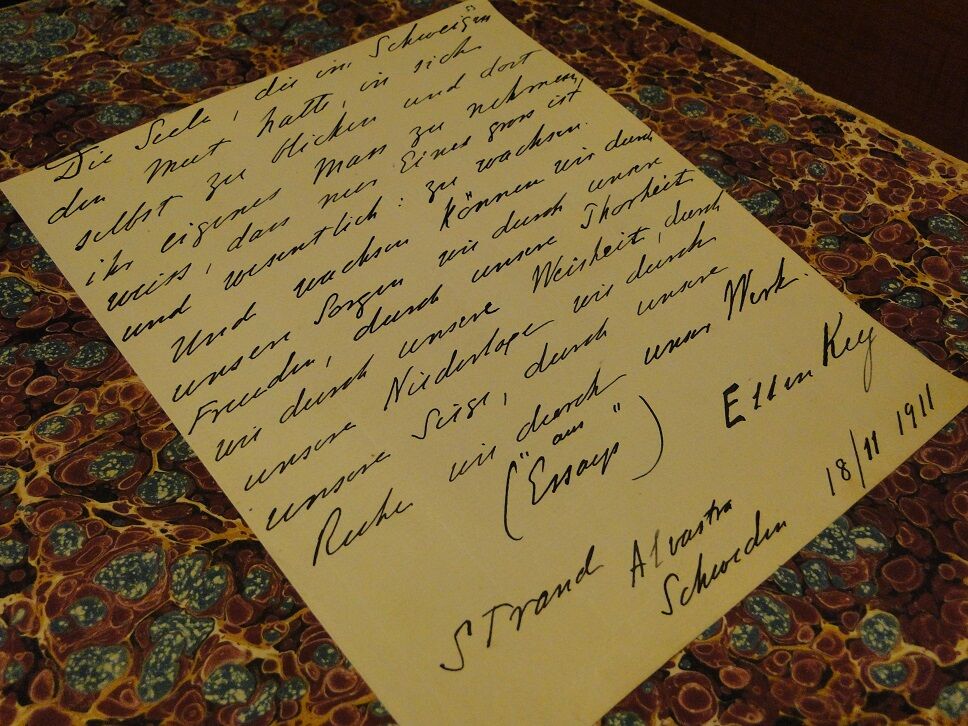 Die Seele, die im Schweigen
den Mut hatte, in sich
selbst zu blicken und dort
ihr eigenes Mass zu nehmen,
weiss, dass nur Eines gross ist
und wesentlich: zu wachsen.
Und wachsen können wir durch
unsere Sorgen wie durch unsere
Freuden, durch unsere Thorheit
wie durch unsere Weisheit, durch
unsere Niederlagen wie durch
unsere Siege, durch unsere
Ruhe wie durch unser Werk.
(aus
"Essays")
Ellen Key
Strand Alvastra
Schweden
18/11 1911